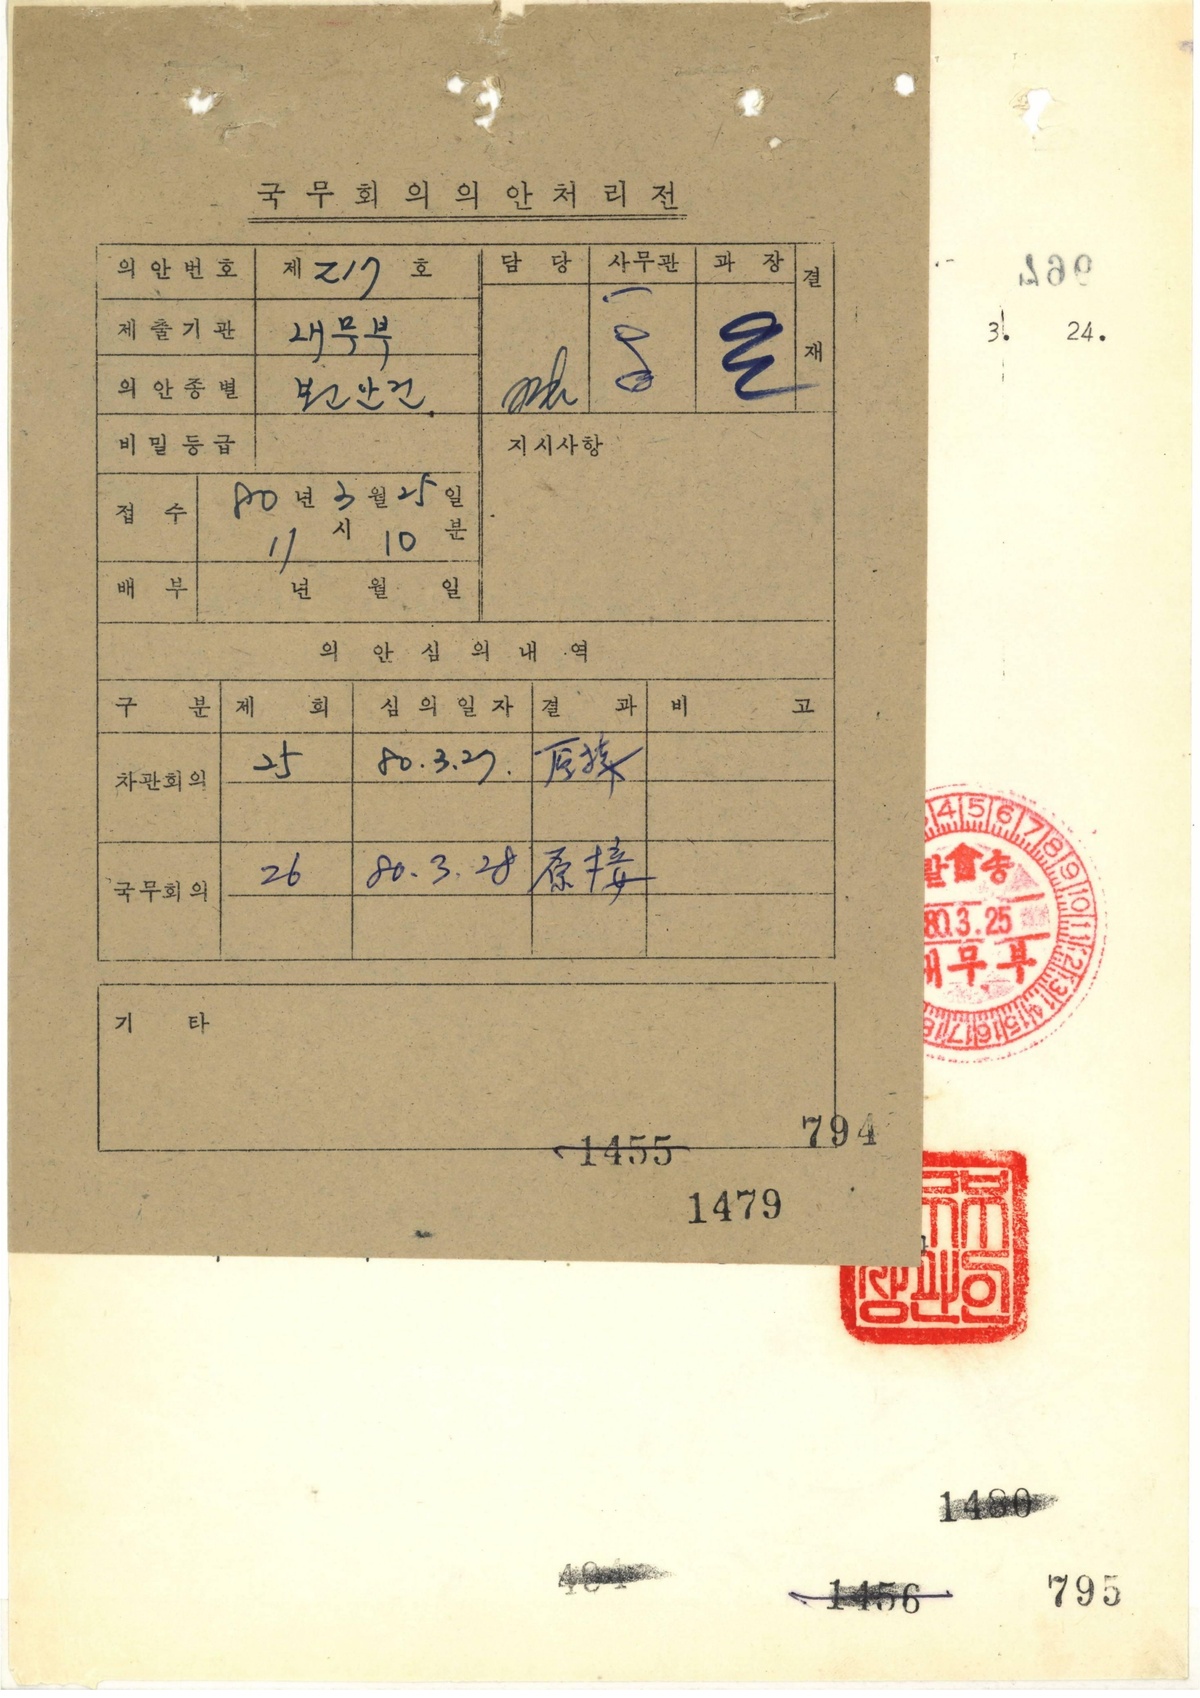 국무회의의안처리전
의안번호 제 217 호
담당 사무관 과장 결재
제출기관 내무부
의안종별 보고안건.
비밀등급
지시사항
접수 80년 3월 25일
11시 10분
배부 년 월 일
의안심의내역
구분 제 회 심의일자 결과 비고
차관회의 25 80.3.27. 原接
국무회의 26 80.3.28 原接
기타
794
1455
1479
796
3. 24.
4 5 6 7 8 9 10 11 12 13 14 15 16 17 18
발송
80.3.25
내무부
장관인
1480
484
1456
795